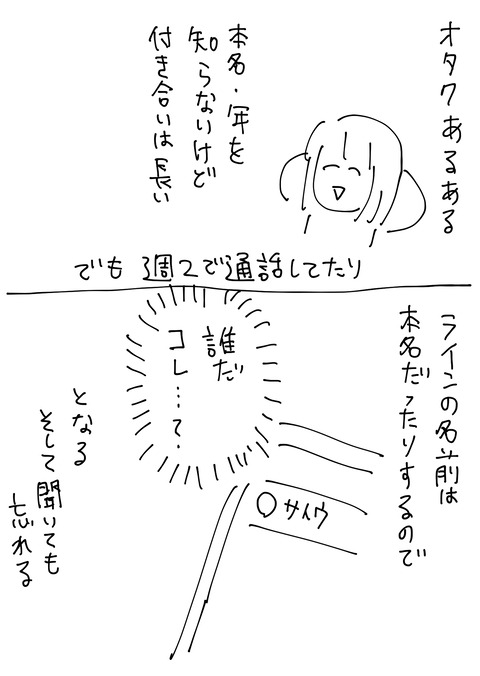 オタクあるある
本名・年を
知らないけど
付き合いは長い
でも週2で通話してたり
ラインの名前は
本名だったりするので
誰だ
コレ…？
〇サイウ
となる
そして聞いても
忘れる